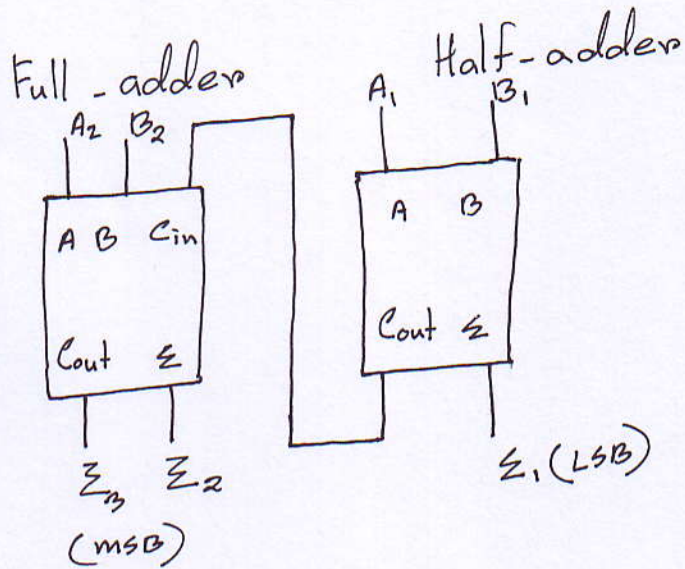 Full-adder
Half-adder
A₂ B₂
A₁ B₁
A B Cin
A B
Cout Σ
Cout Σ
Σ₃ Σ₂
(MSB)
Σ₁ (LSB)